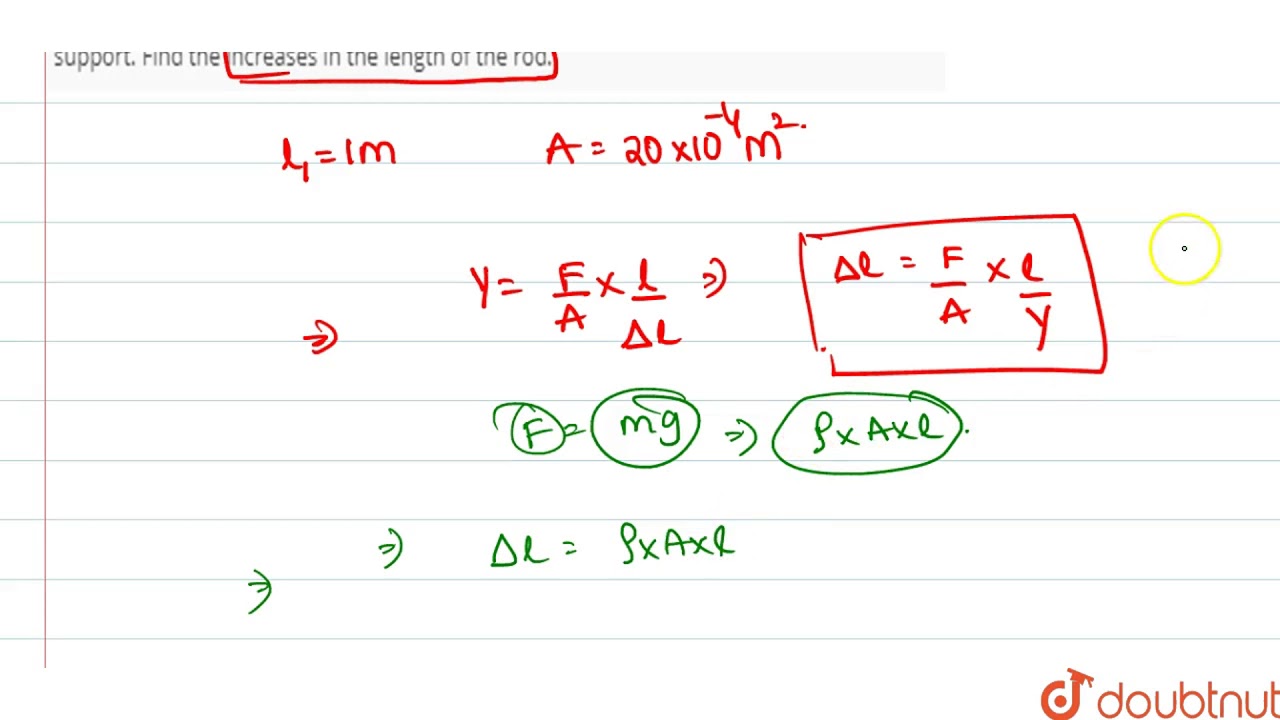 support. Find the increases in the length of the rod.
l₁ = 1m A = 20 × 10⁻⁴ m².
Y = F/A × l/Δl ⇒ Δl = F/A × l/Y
⇒
F = mg ⇒ ρ × A × l.
⇒ Δl = ρ × A × l
⇒
doubtnut